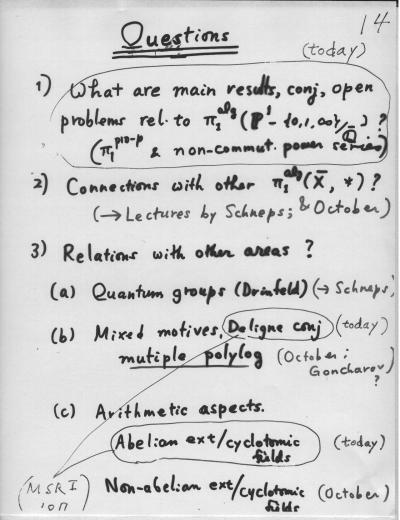 14
Questions
(today)
1) What are main results, conj, open
problems rel. to π₁ᵃˡᵍ(P¹ - {0,1,∞}/Q̄) ?
(π₁ᵖʳᵒ⁻ᵖ & non-commut. power series)
2) Connections with other π₁ᵃˡᵍ(X̄, *) ?
(→ Lectures by Schneps; & October)
3) Relations with other areas ?
(a) Quantum groups (Drinfeld) (→ Schneps)
(b) Mixed motives, Deligne conj (today)
mutiple polylog (October : Goncharov ?
(c) Arithmetic aspects.
Abelian ext/cyclotomic fields (today)
(MSRI
Non-abelian ext/cyclotomic fields (October)